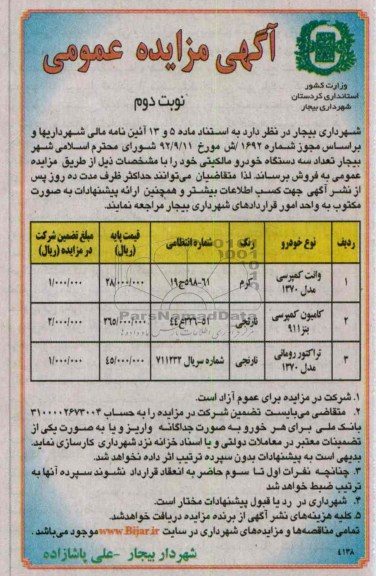 آگهی مزایده عمومی
وزارت کشور
استانداری کردستان
شهرداری بیجار
نوبت دوم
شهرداری بیجار در نظر دارد به استناد ماده ۵ و ۱۳ آئین نامه مالی شهرداریها و
براساس مجوز شماره ۱۶۹۲ /ش مورخ ۹۲/۹/۱۱ شورای محترم اسلامی شهر
بیجار تعداد سه دستگاه خودرو مالکیتی خود را با مشخصات ذیل از طریق مزایده
عمومی به فروش برساند. لذا متقاضیان می‌توانند حداکثر ظرف مدت ده روز پس
از نشر آگهی جهت کسب اطلاعات بیشتر و همچنین ارائه پیشنهادات به صورت
مکتوب به واحد امور قراردادهای شهرداری بیجار مراجعه نمایند.
ردیف نوع خودرو رنگ شماره انتظامی قیمت پایه (ریال) مبلغ تضمین شرکت در مزایده (ریال)
۱ وانت کمپرسی مدل ۱۳۷۰ کرم ۶۱-۵۹۸ج۱۹ ۲۸/۰۰۰/۰۰۰ ۱/۰۰۰/۰۰۰
۲ کامیون کمپرسی بنز ۹۱۱ نارنجی ۵۱-۳۲۶ع۴۴ ۲۶۵/۰۰۰/۰۰۰ ۲/۰۰۰/۰۰۰
۳ تراکتور رومانی مدل ۱۳۷۰ نارنجی شماره سریال ۷۱۱۲۳۲ ۴۵/۰۰۰/۰۰۰ ۱/۰۰۰/۰۰۰
ParsNamadData
۱. شرکت در مزایده برای عموم آزاد است.
۲. متقاضی می‌بایست تضمین شرکت در مزایده را به حساب ۳۱۰۰۰۰۲۶۷۳۰۰۴
بانک ملی برای هر خورو به صورت جداگانه واریز و یا به صورت یکی از
تضمینات معتبر در معاملات دولتی و یا اسناد خزانه نزد شهرداری کارسازی نماید.
بدیهی است به پیشنهادات بدون سپرده ترتیب اثر داده نخواهد شد.
۳. چنانچه نفرات اول تا سوم حاضر به انعقاد قرارداد نشوند سپرده آنها به
ترتیب ضبط خواهد شد
۴. شهرداری در رد یا قبول پیشنهادات مختار است.
۵. کلیه هزینه‌های نشر آگهی از برنده مزایده دریافت خواهدشد.
تمامی مناقصه‌ها و مزایده‌های شهرداری در سایت www.Bijar.ir موجود می‌باشد.
شهردار بیجار -علی پاشازاده
۴۱۳۸